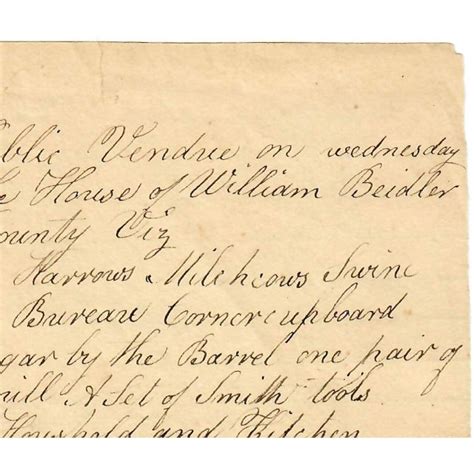 ublic Vendue on wednesday
e House of William Beidler
ounty Viz
Harrows Milchcows Swine
Bureau Cornercupboard
gar by the Barrel one pair of
mill A Set of Smith tools
Houshold and Kitchen